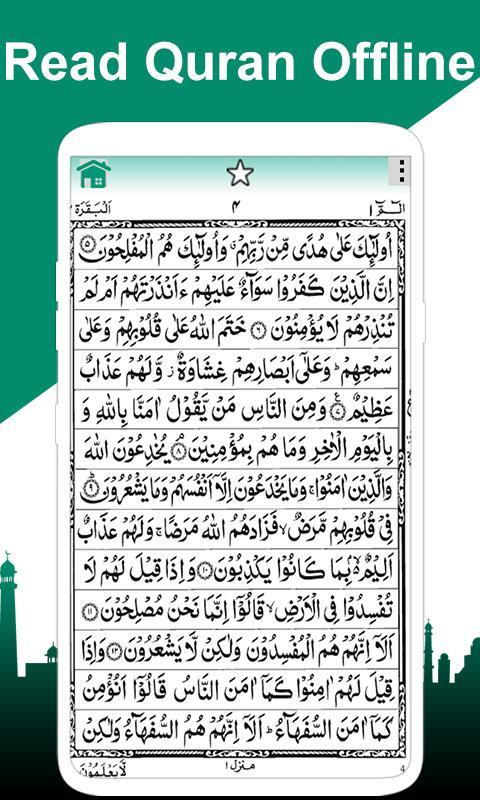 Read Quran Offline
الٓمّٓ ١ ۴ اَلْبَقَرَة ٢
اُولٰٓئِكَ عَلٰى هُدًى مِّنْ رَّبِّهِمْ ۙ وَاُولٰٓئِكَ هُمُ الْمُفْلِحُوْنَ ۝۵
اِنَّ الَّذِيْنَ كَفَرُوْا سَوَآءٌ عَلَيْهِمْ ءَاَنْذَرْتَهُمْ اَمْ لَمْ
تُنْذِرْهُمْ لَا يُؤْمِنُوْنَ ۝۶ خَتَمَ اللّٰهُ عَلٰى قُلُوْبِهِمْ وَعَلٰى
سَمْعِهِمْ ؕ وَعَلٰٓى اَبْصَارِهِمْ غِشَاوَةٌ ز وَّلَهُمْ عَذَابٌ
عَظِيْمٌ ۝۷ وَمِنَ النَّاسِ مَنْ يَّقُوْلُ اٰمَنَّا بِاللّٰهِ وَ
بِالْيَوْمِ الْاٰخِرِ وَمَا هُمْ بِمُؤْمِنِيْنَ ۝۸ يُخٰدِعُوْنَ اللّٰهَ
وَالَّذِيْنَ اٰمَنُوْا ۚ وَمَا يَخْدَعُوْنَ اِلَّاۤ اَنْفُسَهُمْ وَمَا يَشْعُرُوْنَ ۝۹
فِيْ قُلُوْبِهِمْ مَّرَضٌ ۙ فَزَادَهُمُ اللّٰهُ مَرَضًا ۚ وَلَهُمْ عَذَابٌ
اَلِيْمٌۢ ۙ بِمَا كَانُوْا يَكْذِبُوْنَ ۝۱۰ وَاِذَا قِيْلَ لَهُمْ لَا
تُفْسِدُوْا فِي الْاَرْضِ ۙ قَالُوْٓا اِنَّمَا نَحْنُ مُصْلِحُوْنَ ۝۱۱
اَلَآ اِنَّهُمْ هُمُ الْمُفْسِدُوْنَ وَلٰكِنْ لَّا يَشْعُرُوْنَ ۝۱۲ وَاِذَا
قِيْلَ لَهُمْ اٰمِنُوْا كَمَآ اٰمَنَ النَّاسُ قَالُوْٓا اَنُؤْمِنُ
كَمَآ اٰمَنَ السُّفَهَآءُ ؕ اَلَآ اِنَّهُمْ هُمُ السُّفَهَآءُ وَلٰكِنْ
4 منزل ١ لَّا يَعْلَمُوْنَ